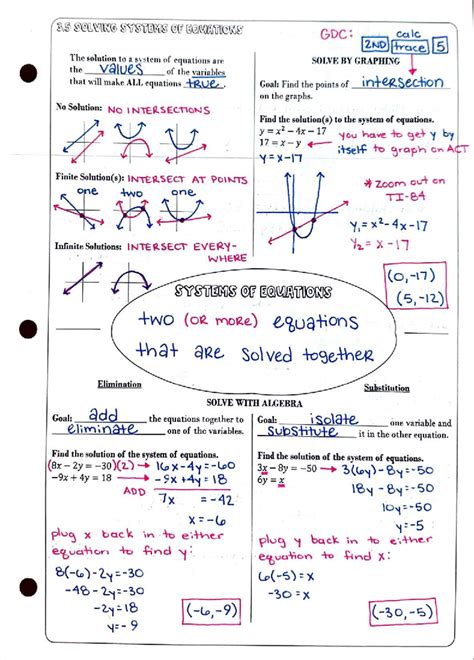 3.5 SOLVING SYSTEMS OF EQUATIONS
The solution to a system of equations are
the values of the variables
that will make ALL equations true.
No Solution: NO INTERSECTIONS
Finite Solution(s): INTERSECT AT POINTS
one two one
Infinite Solutions: INTERSECT EVERY-
WHERE
GDC: 2ND calc trace 5
SOLVE BY GRAPHING
Goal: Find the points of intersection
on the graphs.
Find the solution(s) to the system of equations.
y = x² − 4x − 17
17 = x − y
y = x-17
you have to get y by
itself to graph on ACT
* zoom out on
TI-84
y₁ = x²-4x-17
y₂ = x-17
(0,-17)
(5,-12)
SYSTEMS OF EQUATIONS
two (OR MORE) equations
that are solved together
Elimination
Substitution
SOLVE WITH ALGEBRA
Goal: add the equations together to
eliminate one of the variables.
Find the solution of the system of equations.
(8x − 2y = −30)(2) → 16x-4y=-60
−9x + 4y = 18 → -9x+4y=18
ADD 7x = -42
x = -6
plug x back in to either
equation to find y:
8(-6)-2y=-30
-48-2y=-30
-2y=18
y=-9
(-6,-9)
Goal: isolate one variable and
substitute it in the other equation.
Find the solution of the system of equations.
3x − 8y = −50 → 3(6y)-8y=-50
6y = x
18y-8y=-50
10y=-50
y=-5
plug y back in to either
equation to find x:
6(-5)=x
-30=x
(-30,-5)